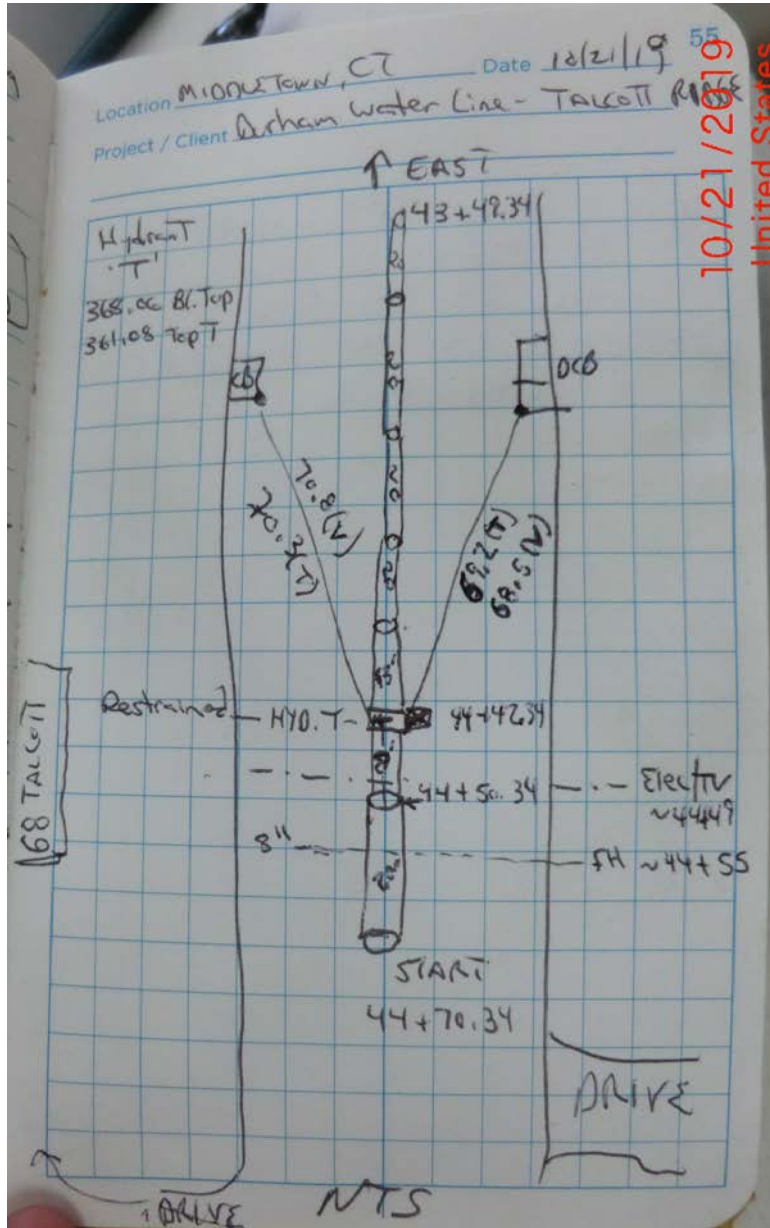 55
Location MIDDLETOWN, CT Date 10/21/19
Project / Client Durham Water Line - TALCOTT RIDGE
10/21/2019
United States
↑ EAST
43+49.34
Hydrant
"T"
368.06 Bl. Top
361.08 Top T
CB
DCB
70.8(V)
70.3(T)
69.2(T)
68.5(V)
Restrained
HYD. T
44+42.34
68 TALCOTT
44+50.34
Elec/TV
~44+49
8"
SH ~44+55
START
44+70.34
DRIVE
DRIVE
NTS